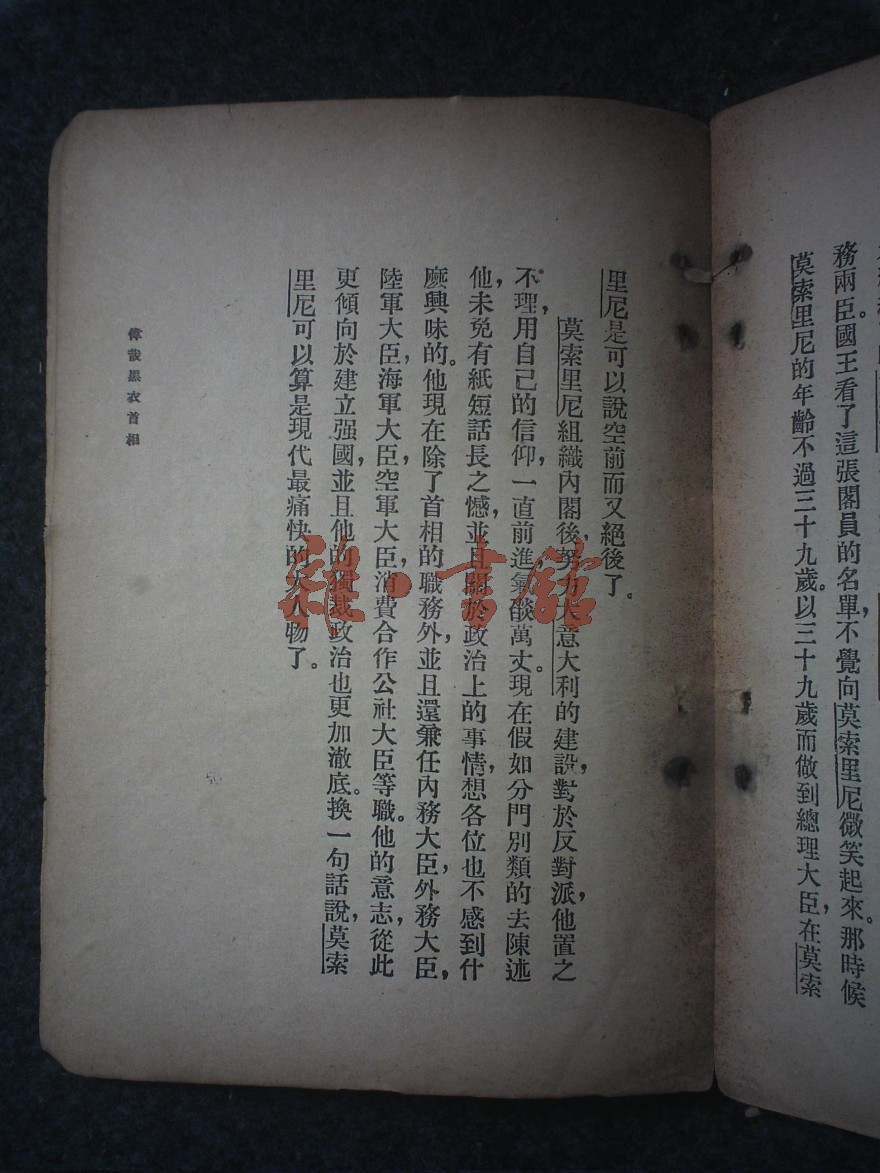 務兩臣。國王看了這張閣員的名單，不覺向莫索里尼微笑起來。那時候
莫索里尼的年齡不過三十九歲。以三十九歲而做到總理大臣，在莫索
里尼是可以說空前而又絕後了。
莫索里尼組織內閣後，努力大意大利的建設，對於反對派，他置之
不理，用自己的信仰，一直前進，氣燄萬丈。現在假如分門別類的去陳述
他，未免有紙短話長之憾，並且關於政治上的事情，想各位也不感到什
麼興味的。他現在除了首相的職務外，並且還兼任內務大臣，外務大臣，
陸軍大臣，海軍大臣，空軍大臣，消費合作公社大臣等職。他的意志，從此
更傾向於建立强國，並且他的獨裁政治也更加澈底。換一句話說，莫索
里尼可以算是現代最痛快的大人物了。
偉哉黑衣首相
雜·書館